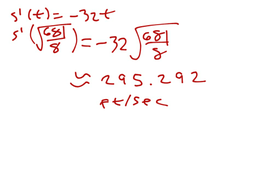 s'(t) = -32t
s'(√(681/8)) = -32 √(681/8)
≈ 295.292
ft/sec